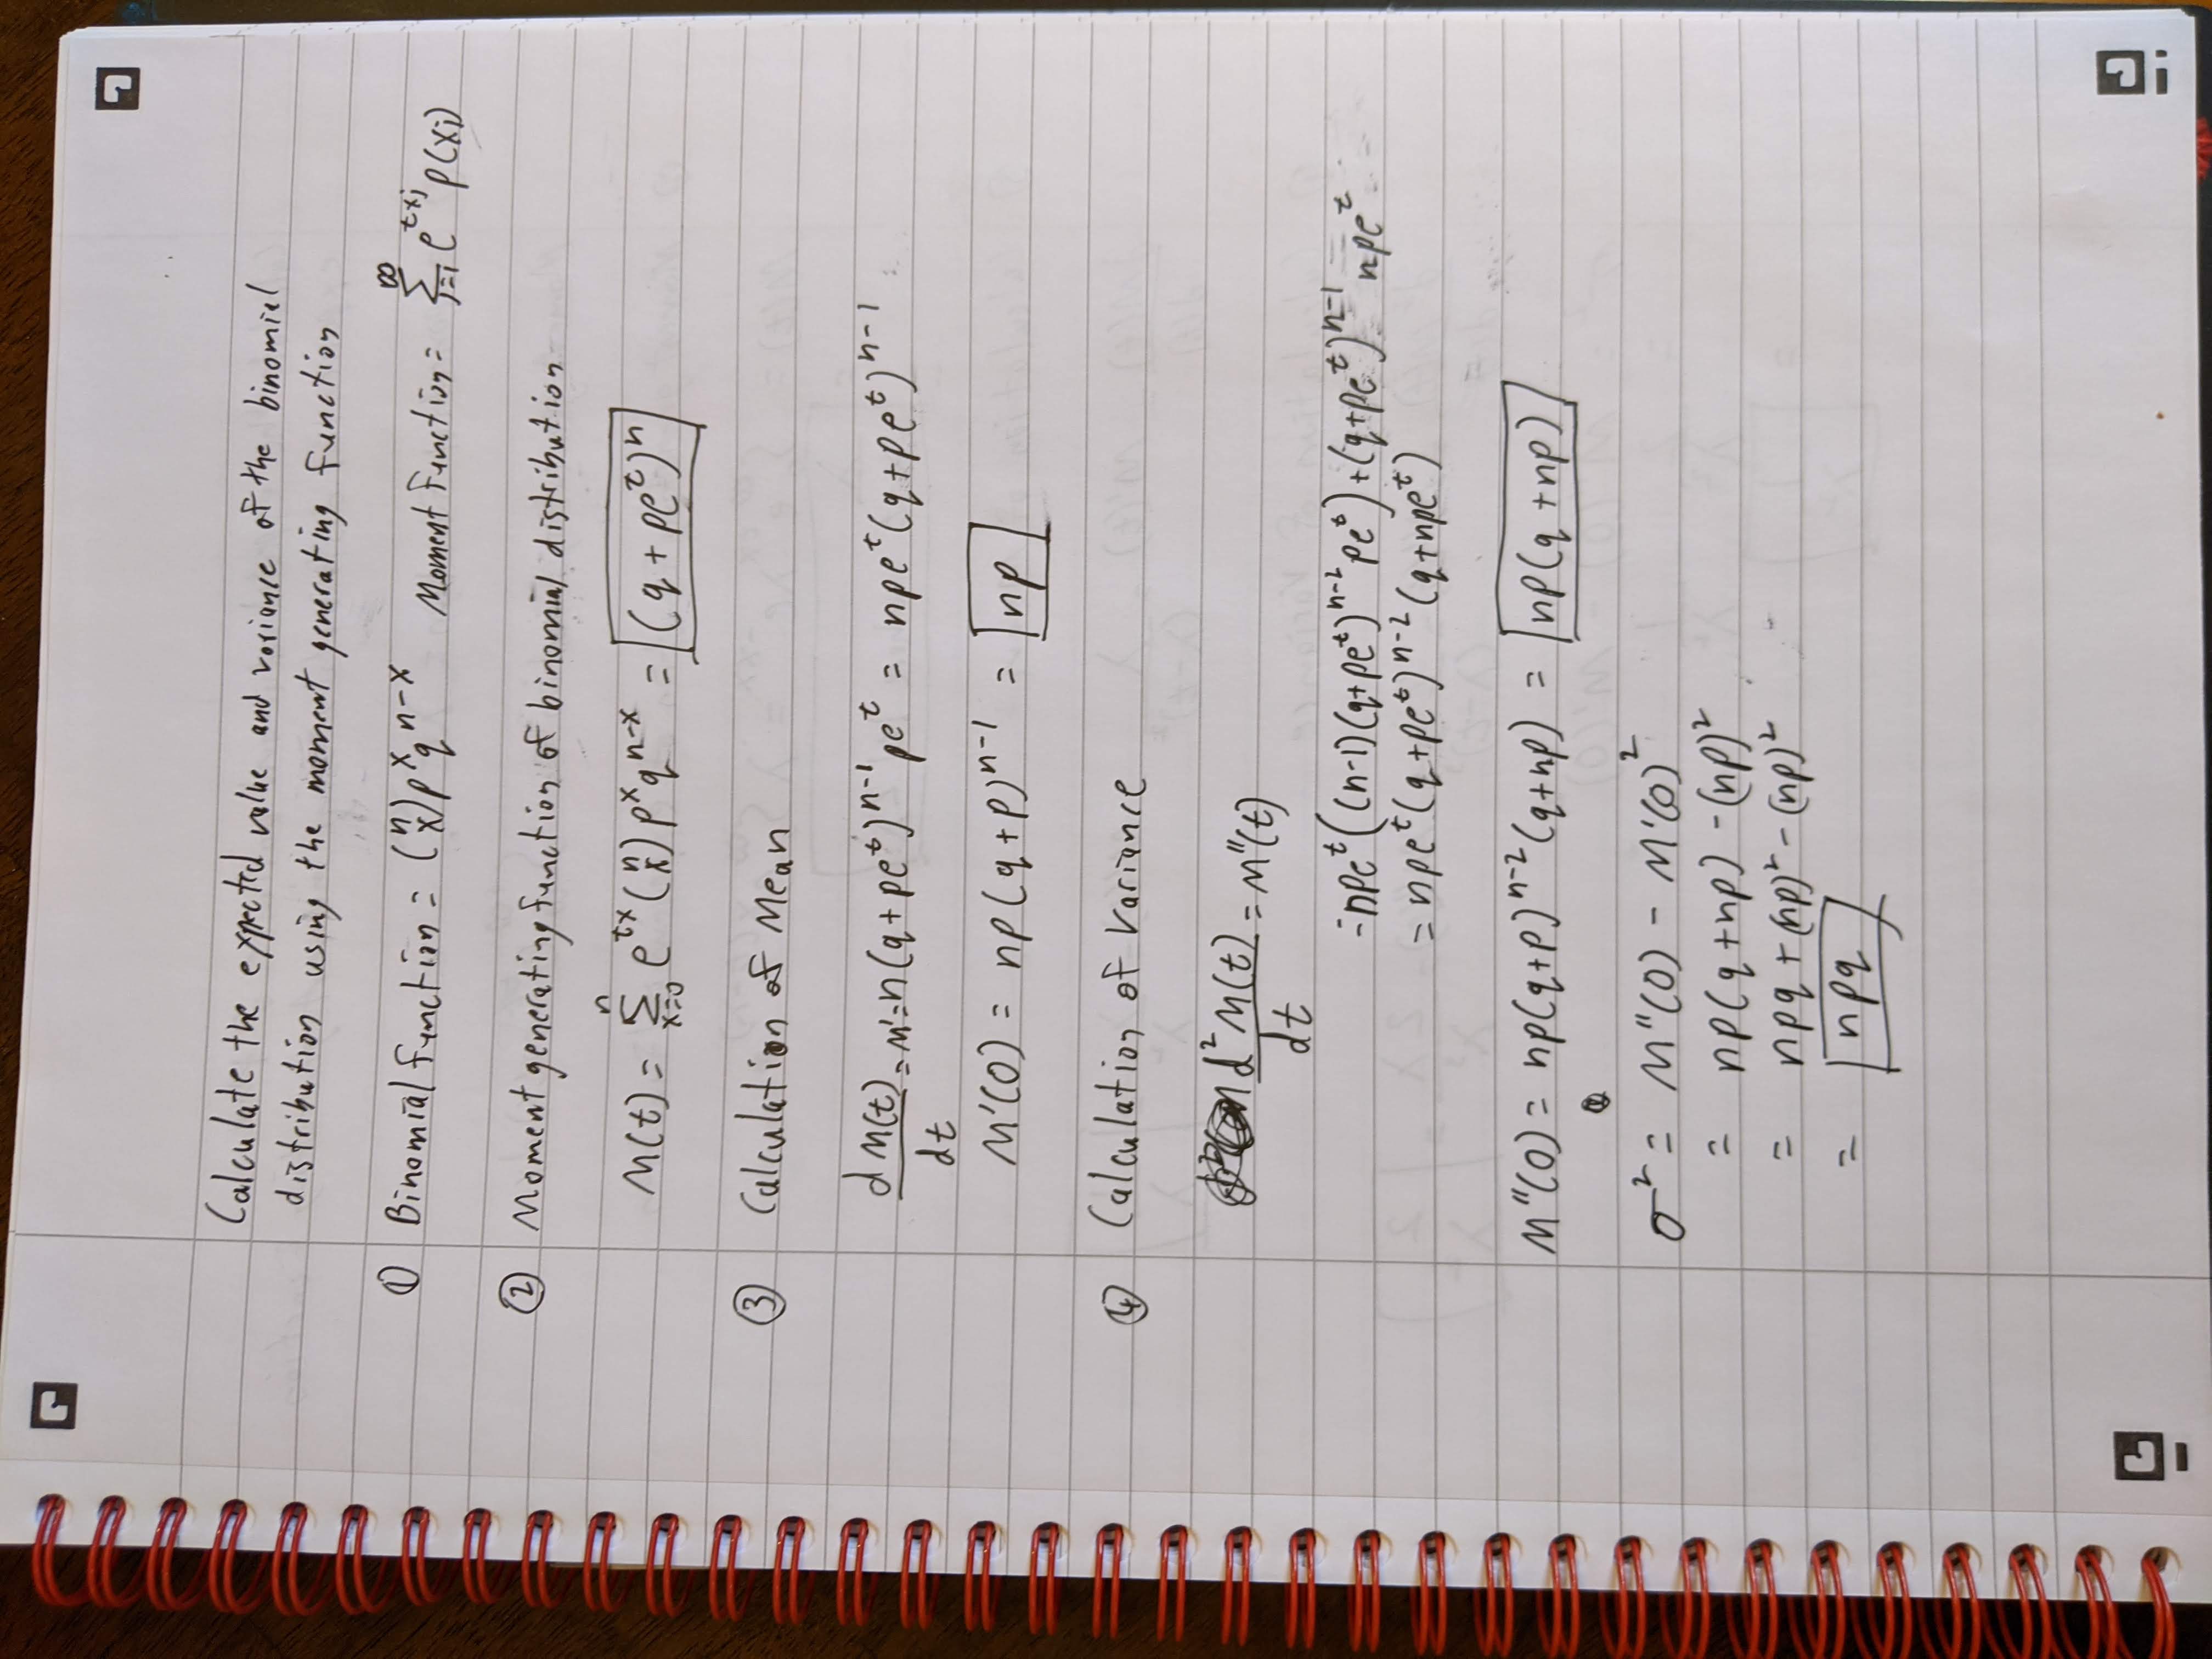 Calculate the expected value and variance of the binomial
distribution using the moment generating function
① Binomial function = (n x) p^x q^(n-x) Moment function = ∑_{j=1}^{∞} e^{txj} p(xj)
② Moment generating function of binomial distribution
M(t) = ∑_{x=0}^{n} e^{tx} (n x) p^x q^{n-x} = (q + pe^t)^n
③ Calculation of Mean
dM(t)/dt = M' = n(q + pe^t)^{n-1} pe^t = npe^t(q+pe^t)^{n-1}
M'(0) = np(q+p)^{n-1} = np
④ Calculation of Variance
d²M(t)/dt = M''(t)
= npe^t((n-1)(q+pe^t)^{n-2} pe^t) + (q+pe^t)^{n-1} npe^t
= npe^t(q+pe^t)^{n-2} (q+npe^t)
M''(0) = np(q+p)^{n-2} (q+np) = np(q+np)
σ² = M''(0) - M'(0)²
= np(q+np) - (np)²
= npq + (np)² - (np)²
= npq